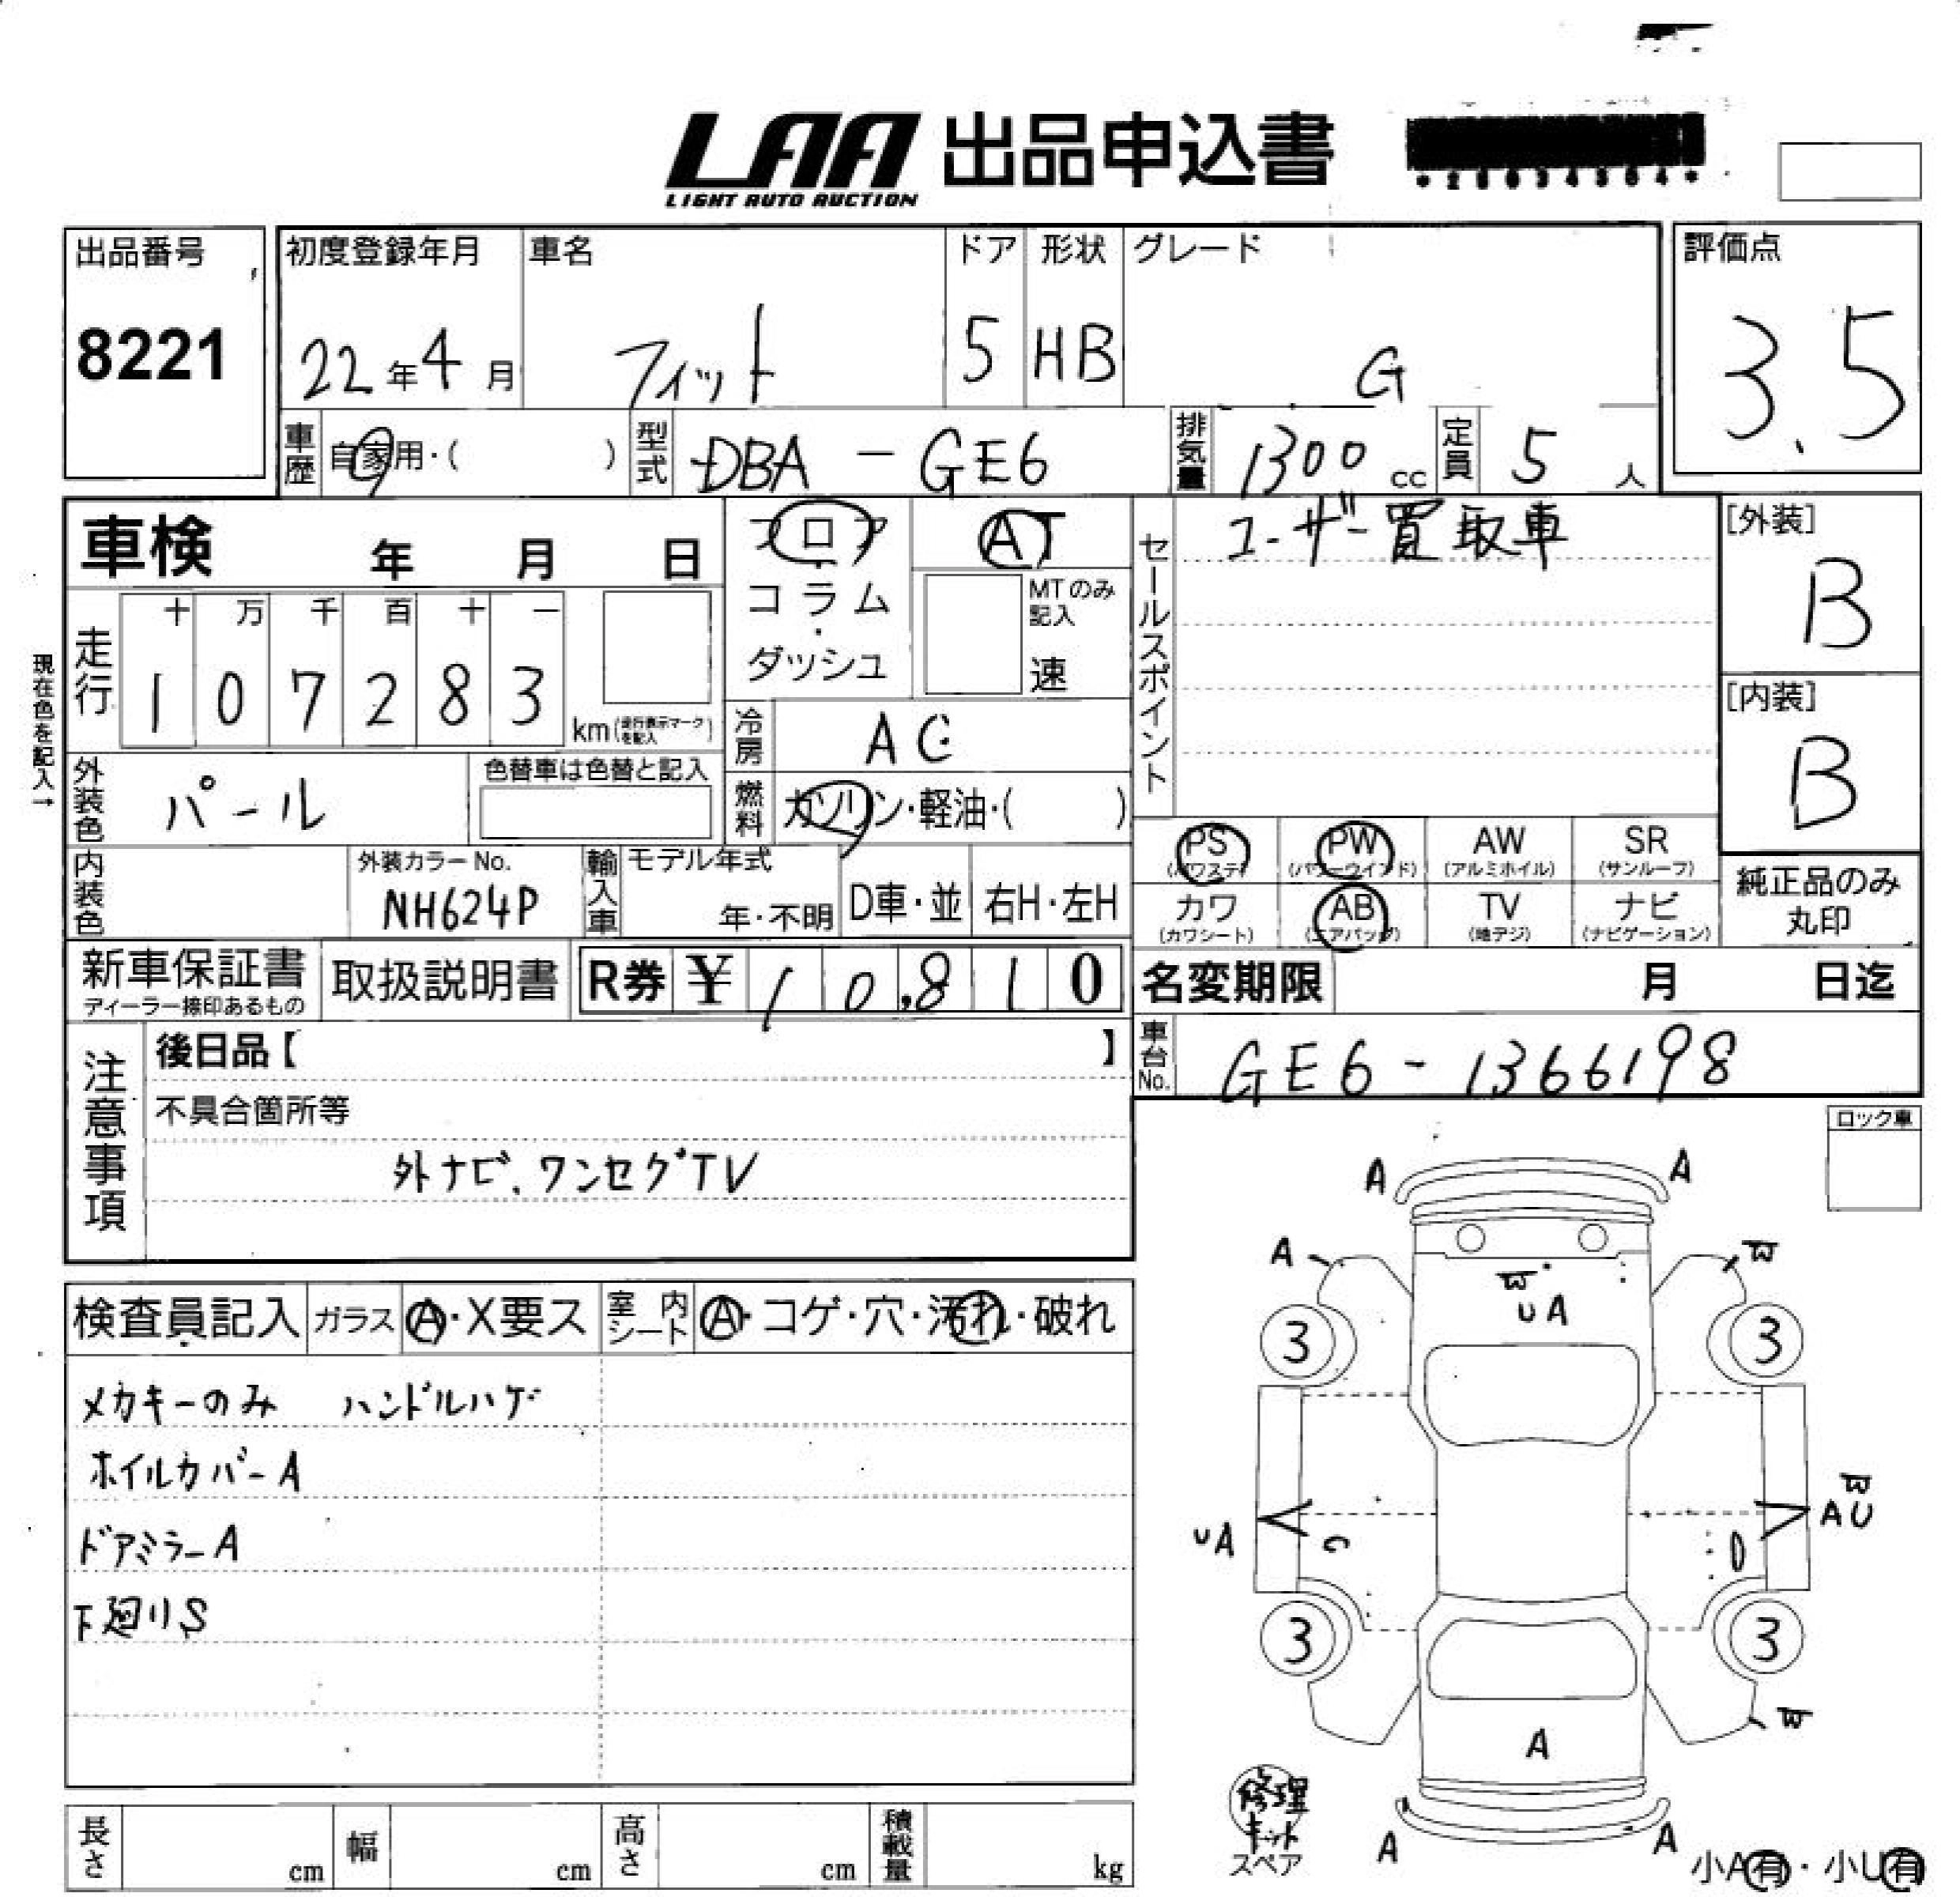 LAA 出品申込書
LIGHT AUTO AUCTION
出品番号
8221
初度登録年月
22年4月
車名
フィット
ドア
5
形状
HB
グレード
G
評価点
3.5
車歴
自家用・( )
型式
DBA-GE6
排気量
1300cc
定員
5人
車検 年 月 日
フロア
・
コラム
・
ダッシュ
AT
MTのみ
記入
速
セールスポイント
ユーザー買取車
[外装]
B
[内装]
B
現在色を記入→
走行
十 万 千 百 十 一
1 0 7 2 8 3
km(走行表示マークを記入)
冷房
AC
外装色
パール
色替車は色替と記入
燃料
ガソリン・軽油・( )
内装色
外装カラーNo.
NH624P
輸入車
モデル年式
年・不明
D車・並
右H・左H
PS
(パワステ)
PW
(パワーウインド)
AW
(アルミホイル)
SR
(サンルーフ)
カワ
(カワシート)
AB
(エアバッグ)
TV
(地デジ)
ナビ
(ナビゲーション)
純正品のみ
丸印
新車保証書
ディーラー捺印あるもの
取扱説明書
R券 ¥10,810
名変期限 月 日迄
車台No.
GE6-1366198
注意事項
後日品【 】
不具合箇所等
外ナビ.ワンセグTV
ロック車
検査員記入
ガラス
A・X要ス
室内シート
A・コゲ・穴・汚れ・破れ
メカキーのみ ハンドルハゲ
ホイルカバーA
ドアミラーA
下廻りS
長さ cm
幅 cm
高さ cm
積載量 kg
A
A
A
W
W
UA
3
3
W
AU
UA
3
3
W
A
A
A
修理
キット
スペア
小A有・小U有